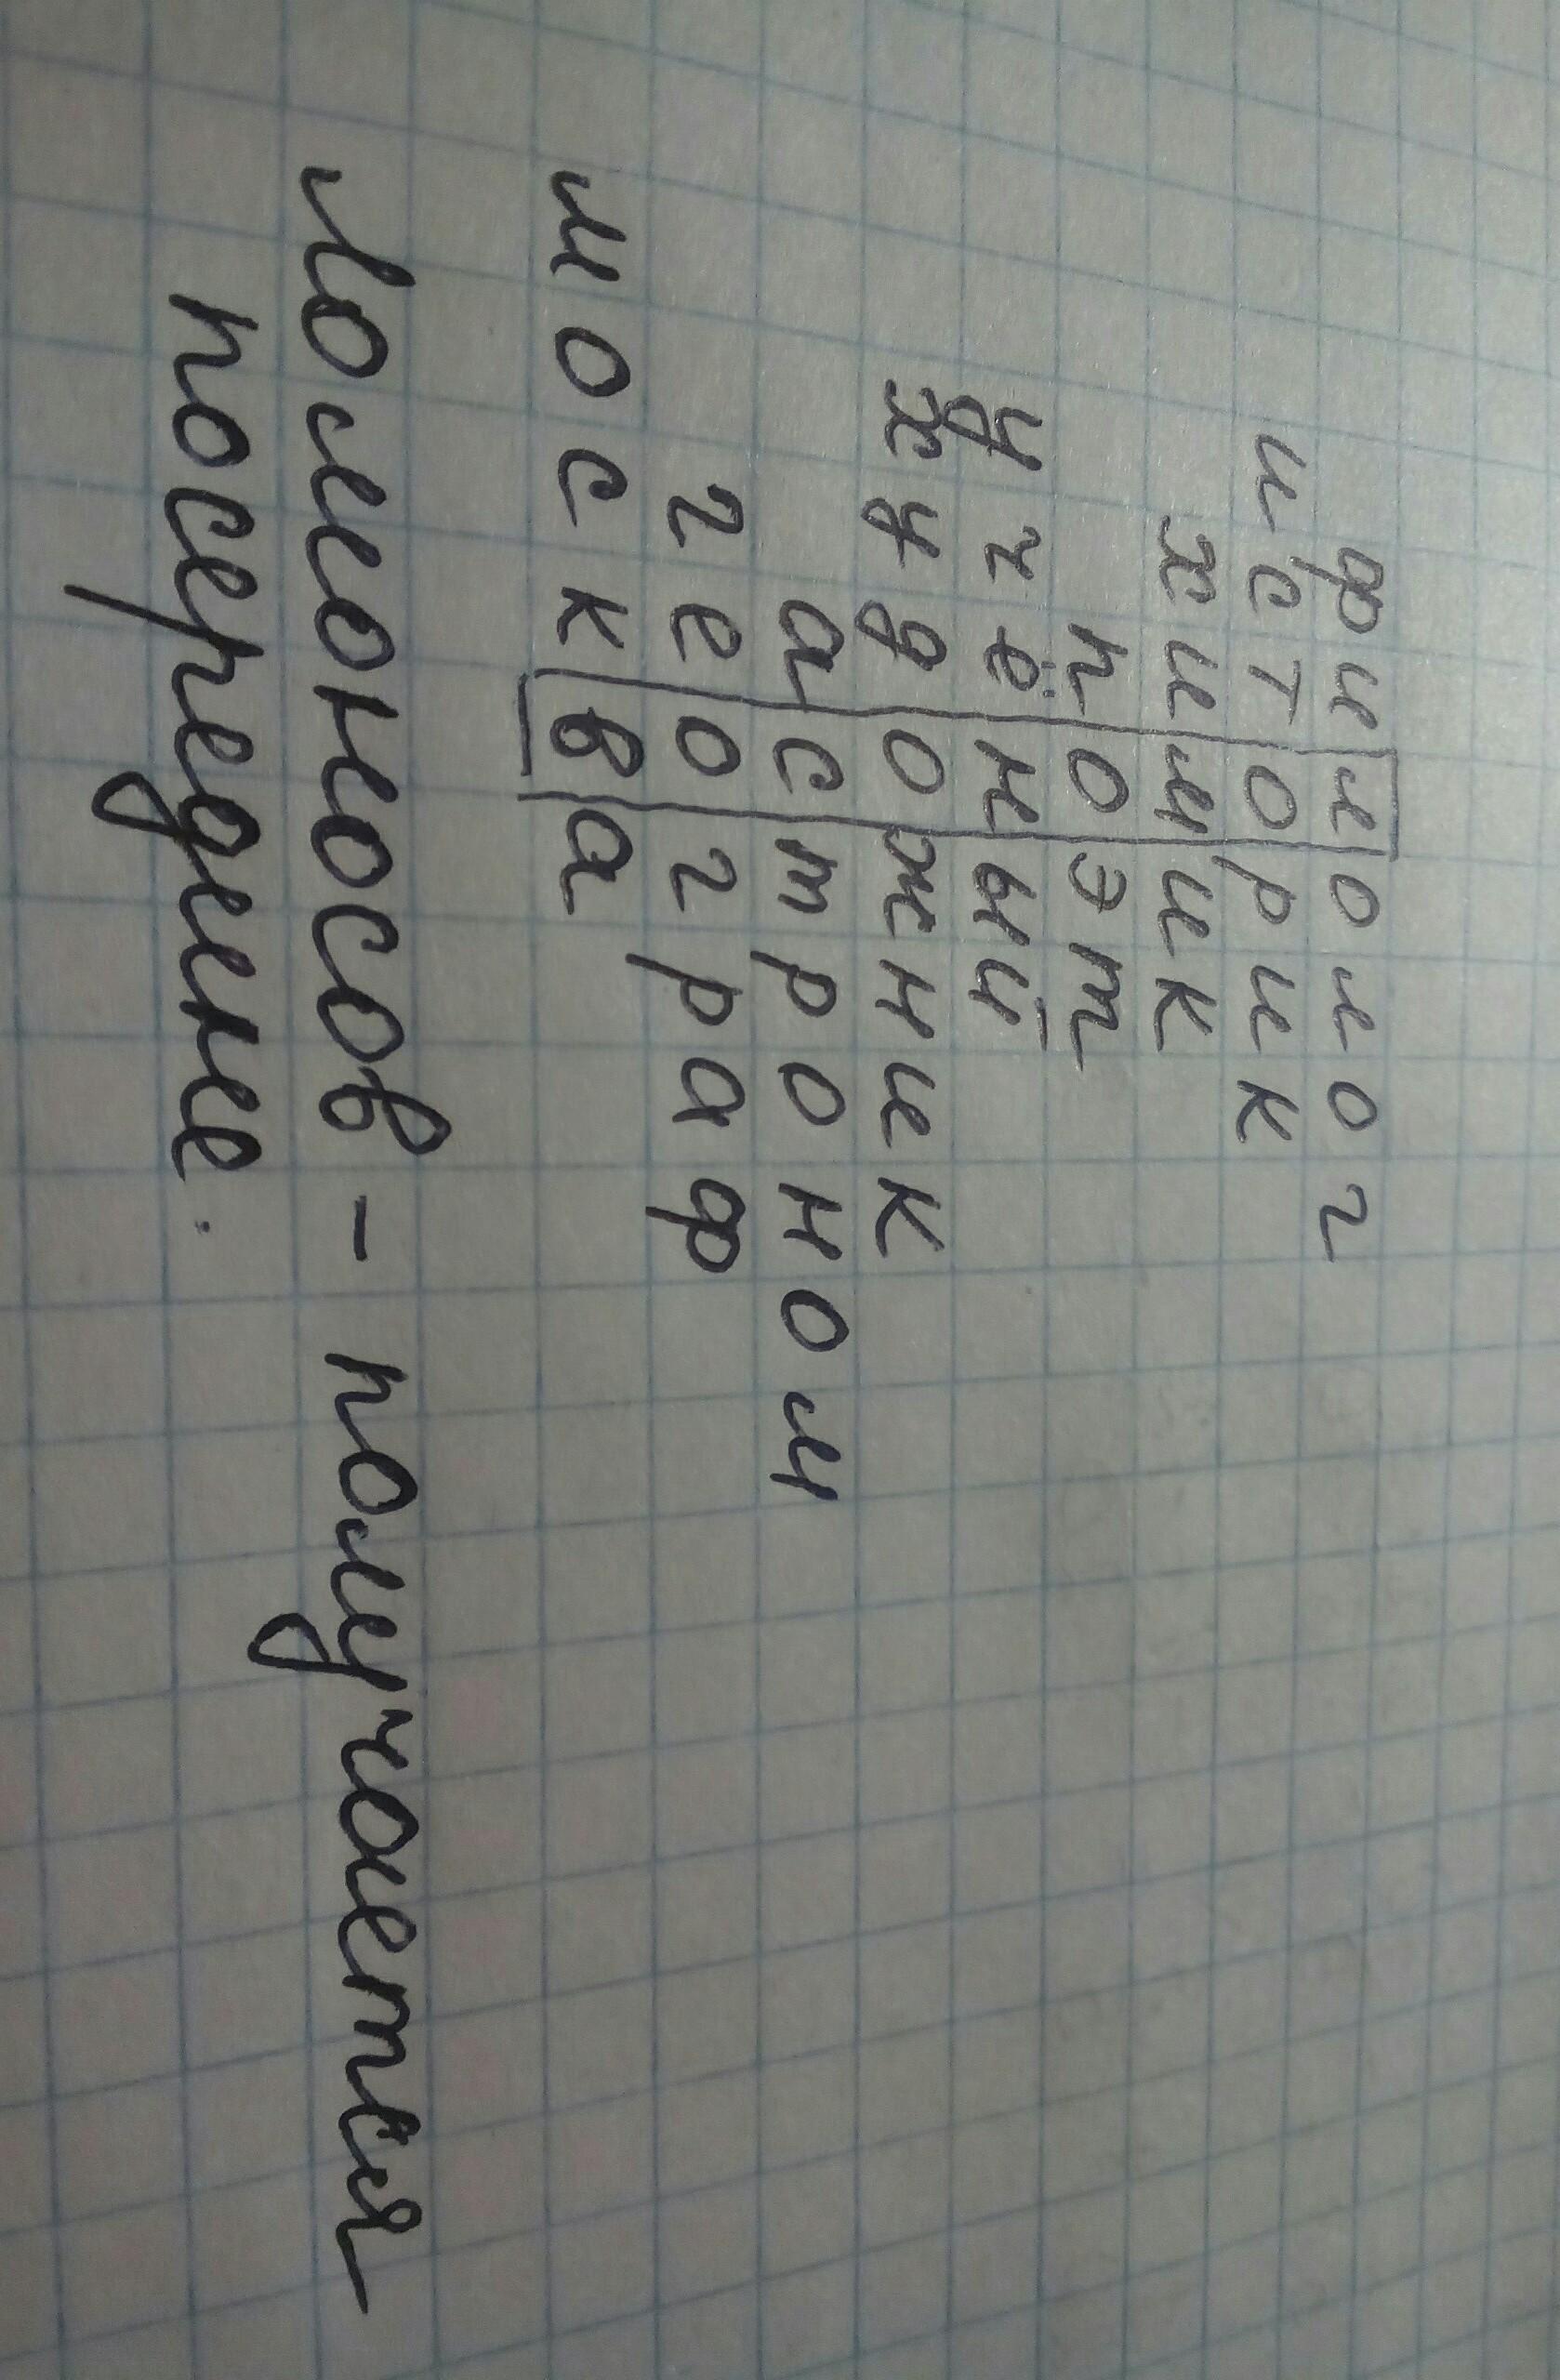 филолог
историк
химик
поэт
учёный
художник
астроном
географ
москва
Ломоносов - получается
посередине.